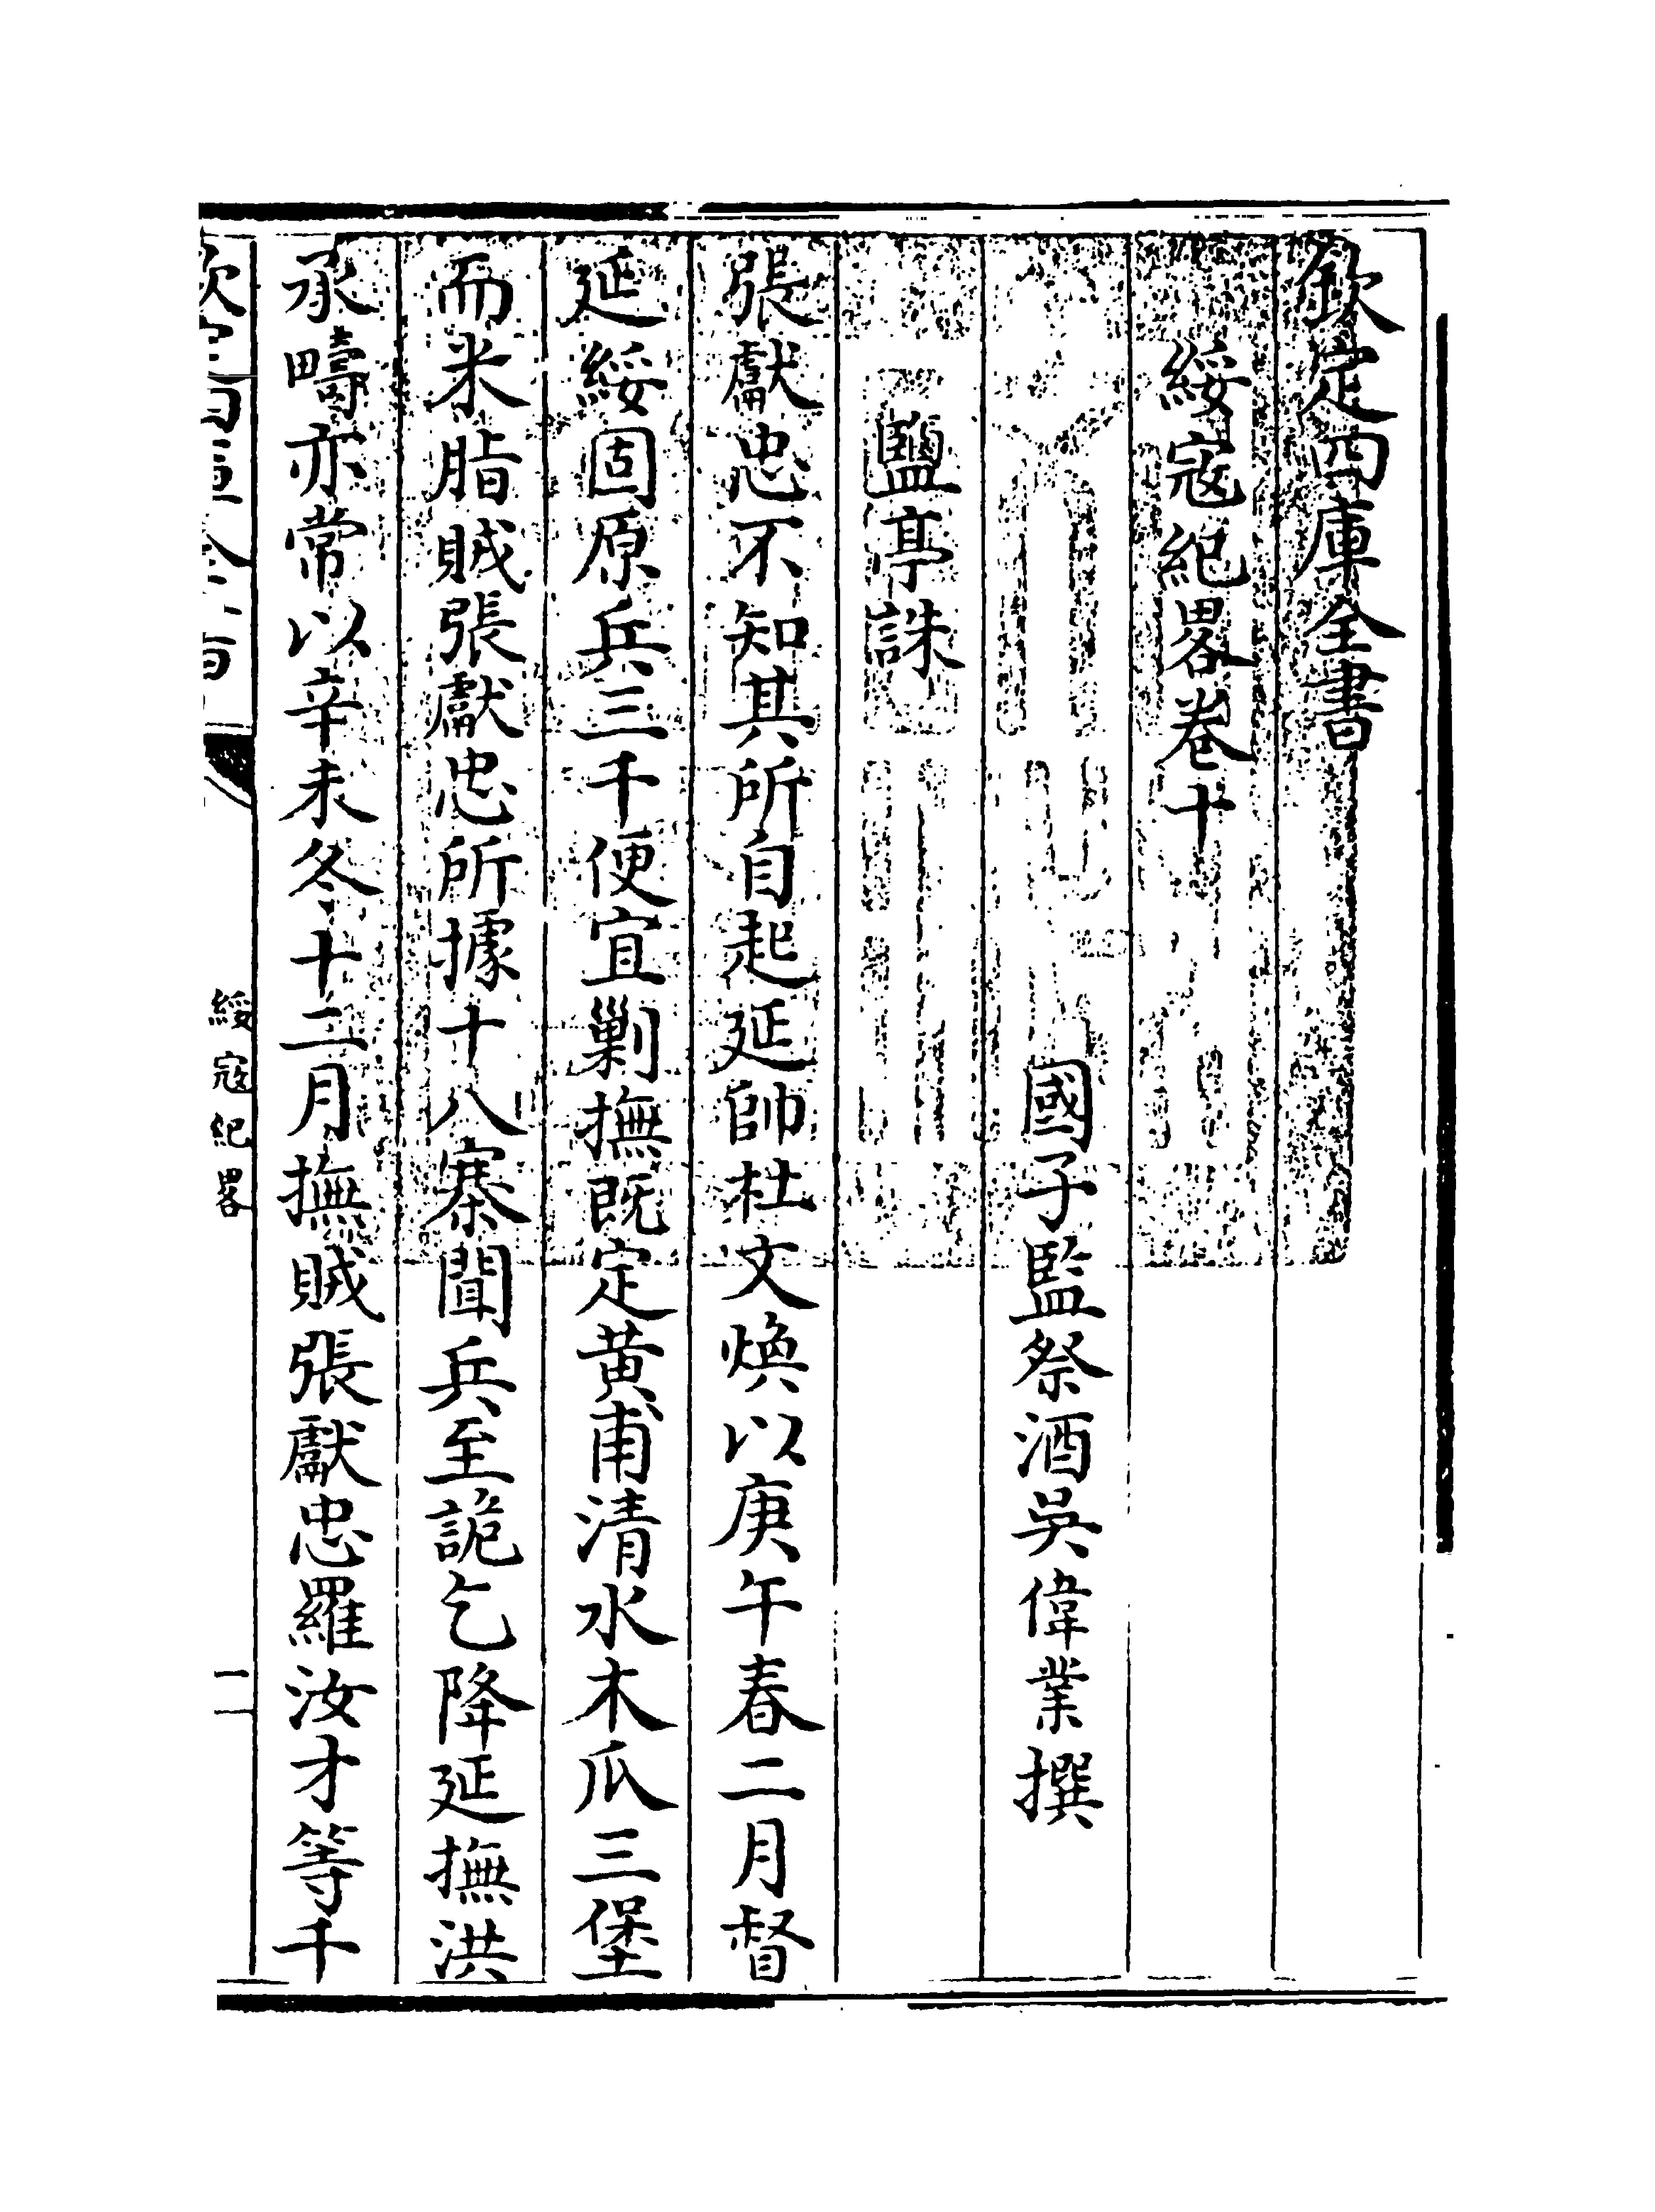 欽定四庫全書
綏寇紀畧卷十
國子監祭酒吳偉業撰
鹽亭誅
張獻忠不知其所自起延帥杜文煥以庚午春二月督
延綏固原兵三千便宜剿撫既定黄甫清水木瓜三堡
而米脂賊張獻忠所據十八寨聞兵至詭乞降延撫洪
承疇亦常以辛未冬十二月撫賊張獻忠羅汝才等千
綏寇紀畧
一